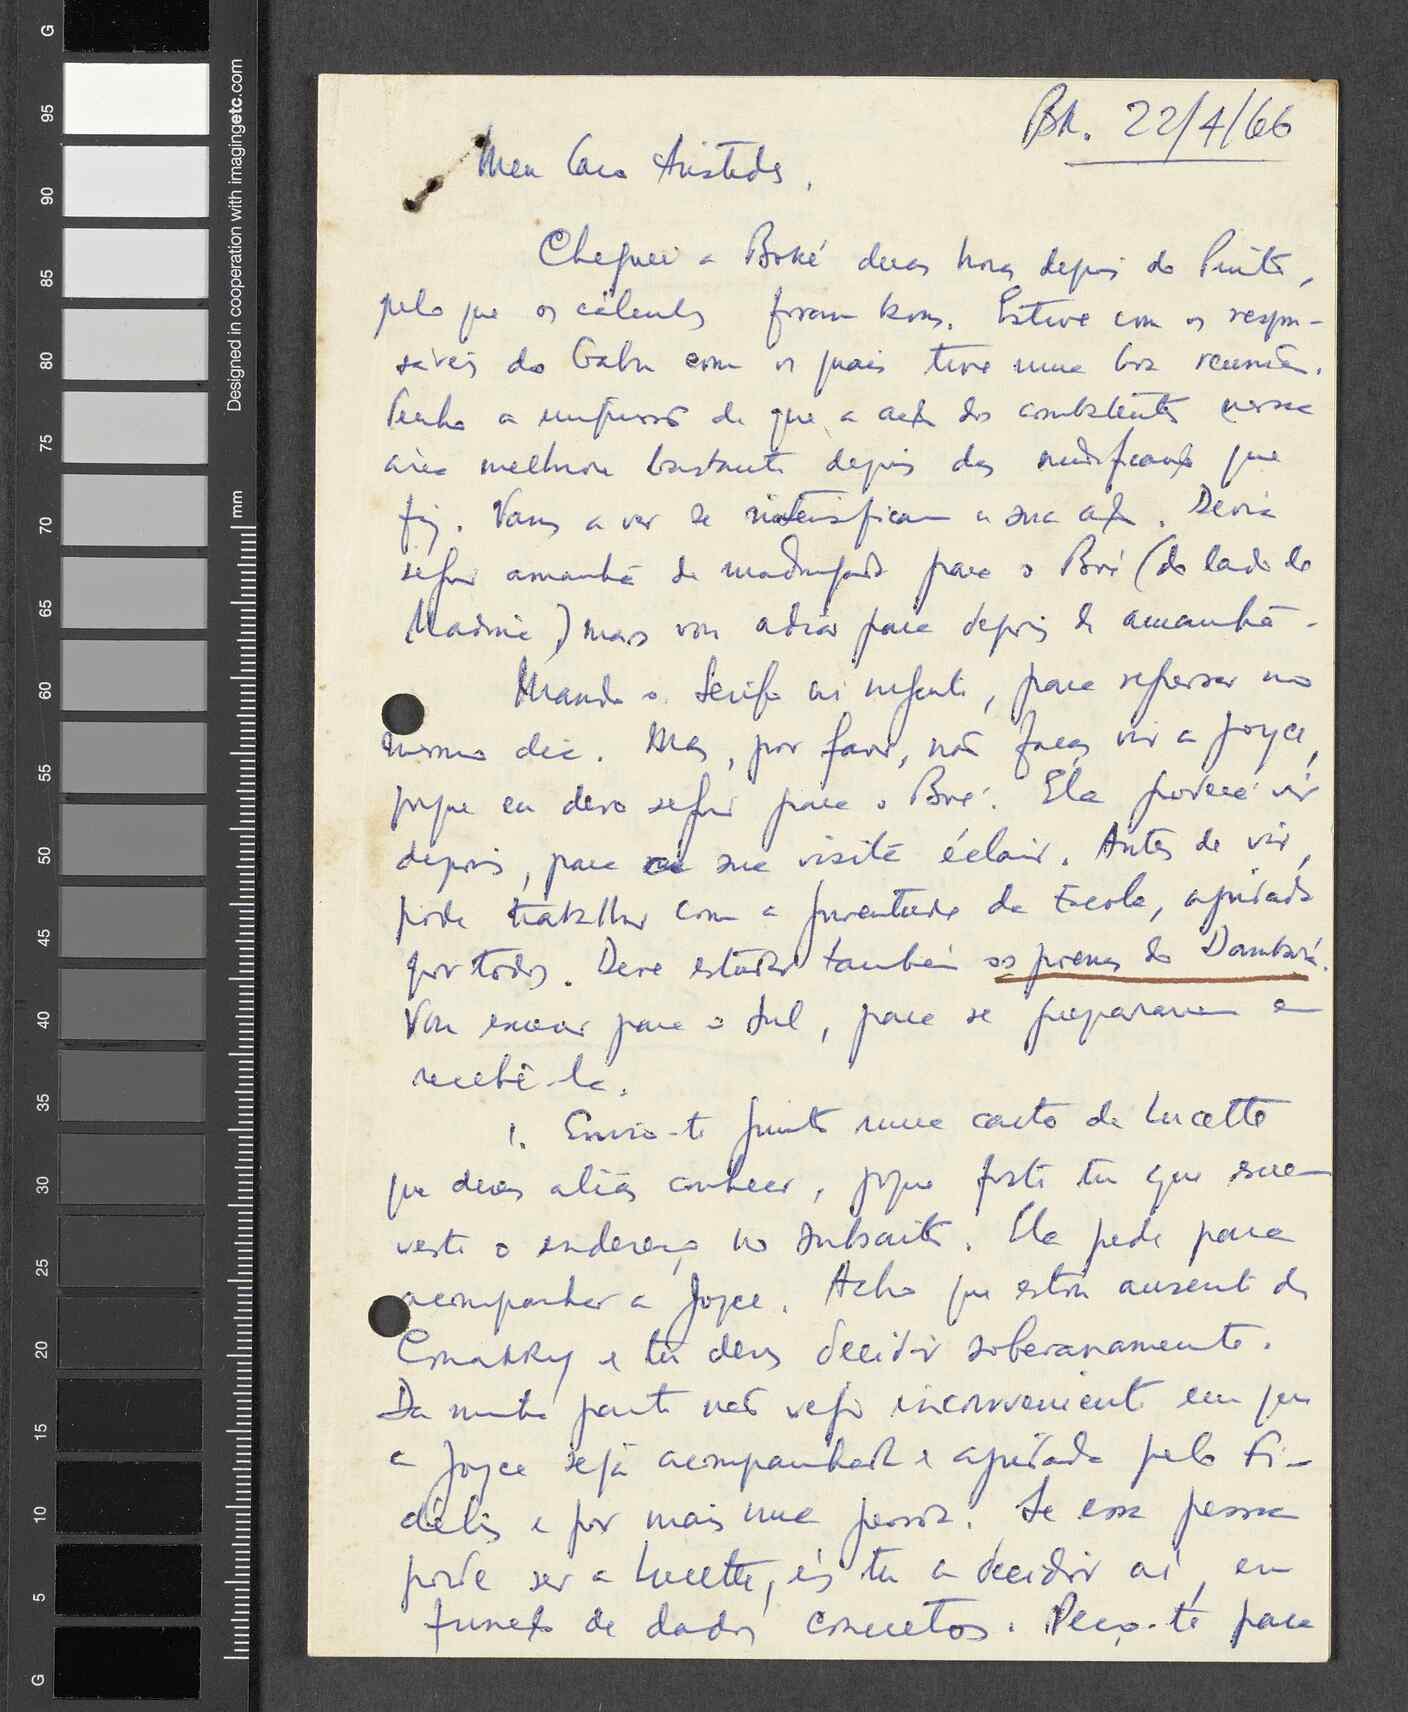 BK. 22/4/66
Meu Caro Aristides,
Cheguei a Boké duas horas depois do Pinto,
pelo que os cálculos foram bons. Estive com os respon-
sáveis do Gabu com os quais tive uma boa reunião.
Tenho a impressão de que a acção dos combatentes nessa
área melhora bastante depois das modificações que
fiz. Vamos a ver se intensificam a sua acção. Devia
seguir amanhã de madrugada para o Boé (do lado de
Madina) mas vou adiar para depois de amanhã.
Mando o Serifo aí, para regressar no
mesmo dia. Mas, por favor, não faças vir a Joyce,
porque eu devo seguir para o Boé. Ela poderá vir
depois, para a sua visita éclair. Antes de vir,
pode trabalhar com a juventude da Escola, ajudada
por todos. Deve estudar também os poemas do Dambará.
Vou escrever para o Sul, para se prepararem a
recebê-la.
1. Envio-te junto uma carta de Lucette
que deves aliás conhecer, porque foste tu que escre-
veste o endereço no subscrito. Ela pede para
acompanhar a Joyce. Acho que estou ausente de
Conakry e tu deves decidir soberanamente.
Da minha parte não vejo inconveniente em que
a Joyce seja acompanhada e ajudada pelo Fi-
délis e por mais uma pessoa. Se essa pessoa
pode ser a Lucette, és tu a decidir aí, em
função de dados concretos. Peço-te para
Designed in cooperation with imagingetc.com
mm
G
95
90
85
80
75
70
65
60
55
50
45
40
35
30
25
20
15
10
5
G